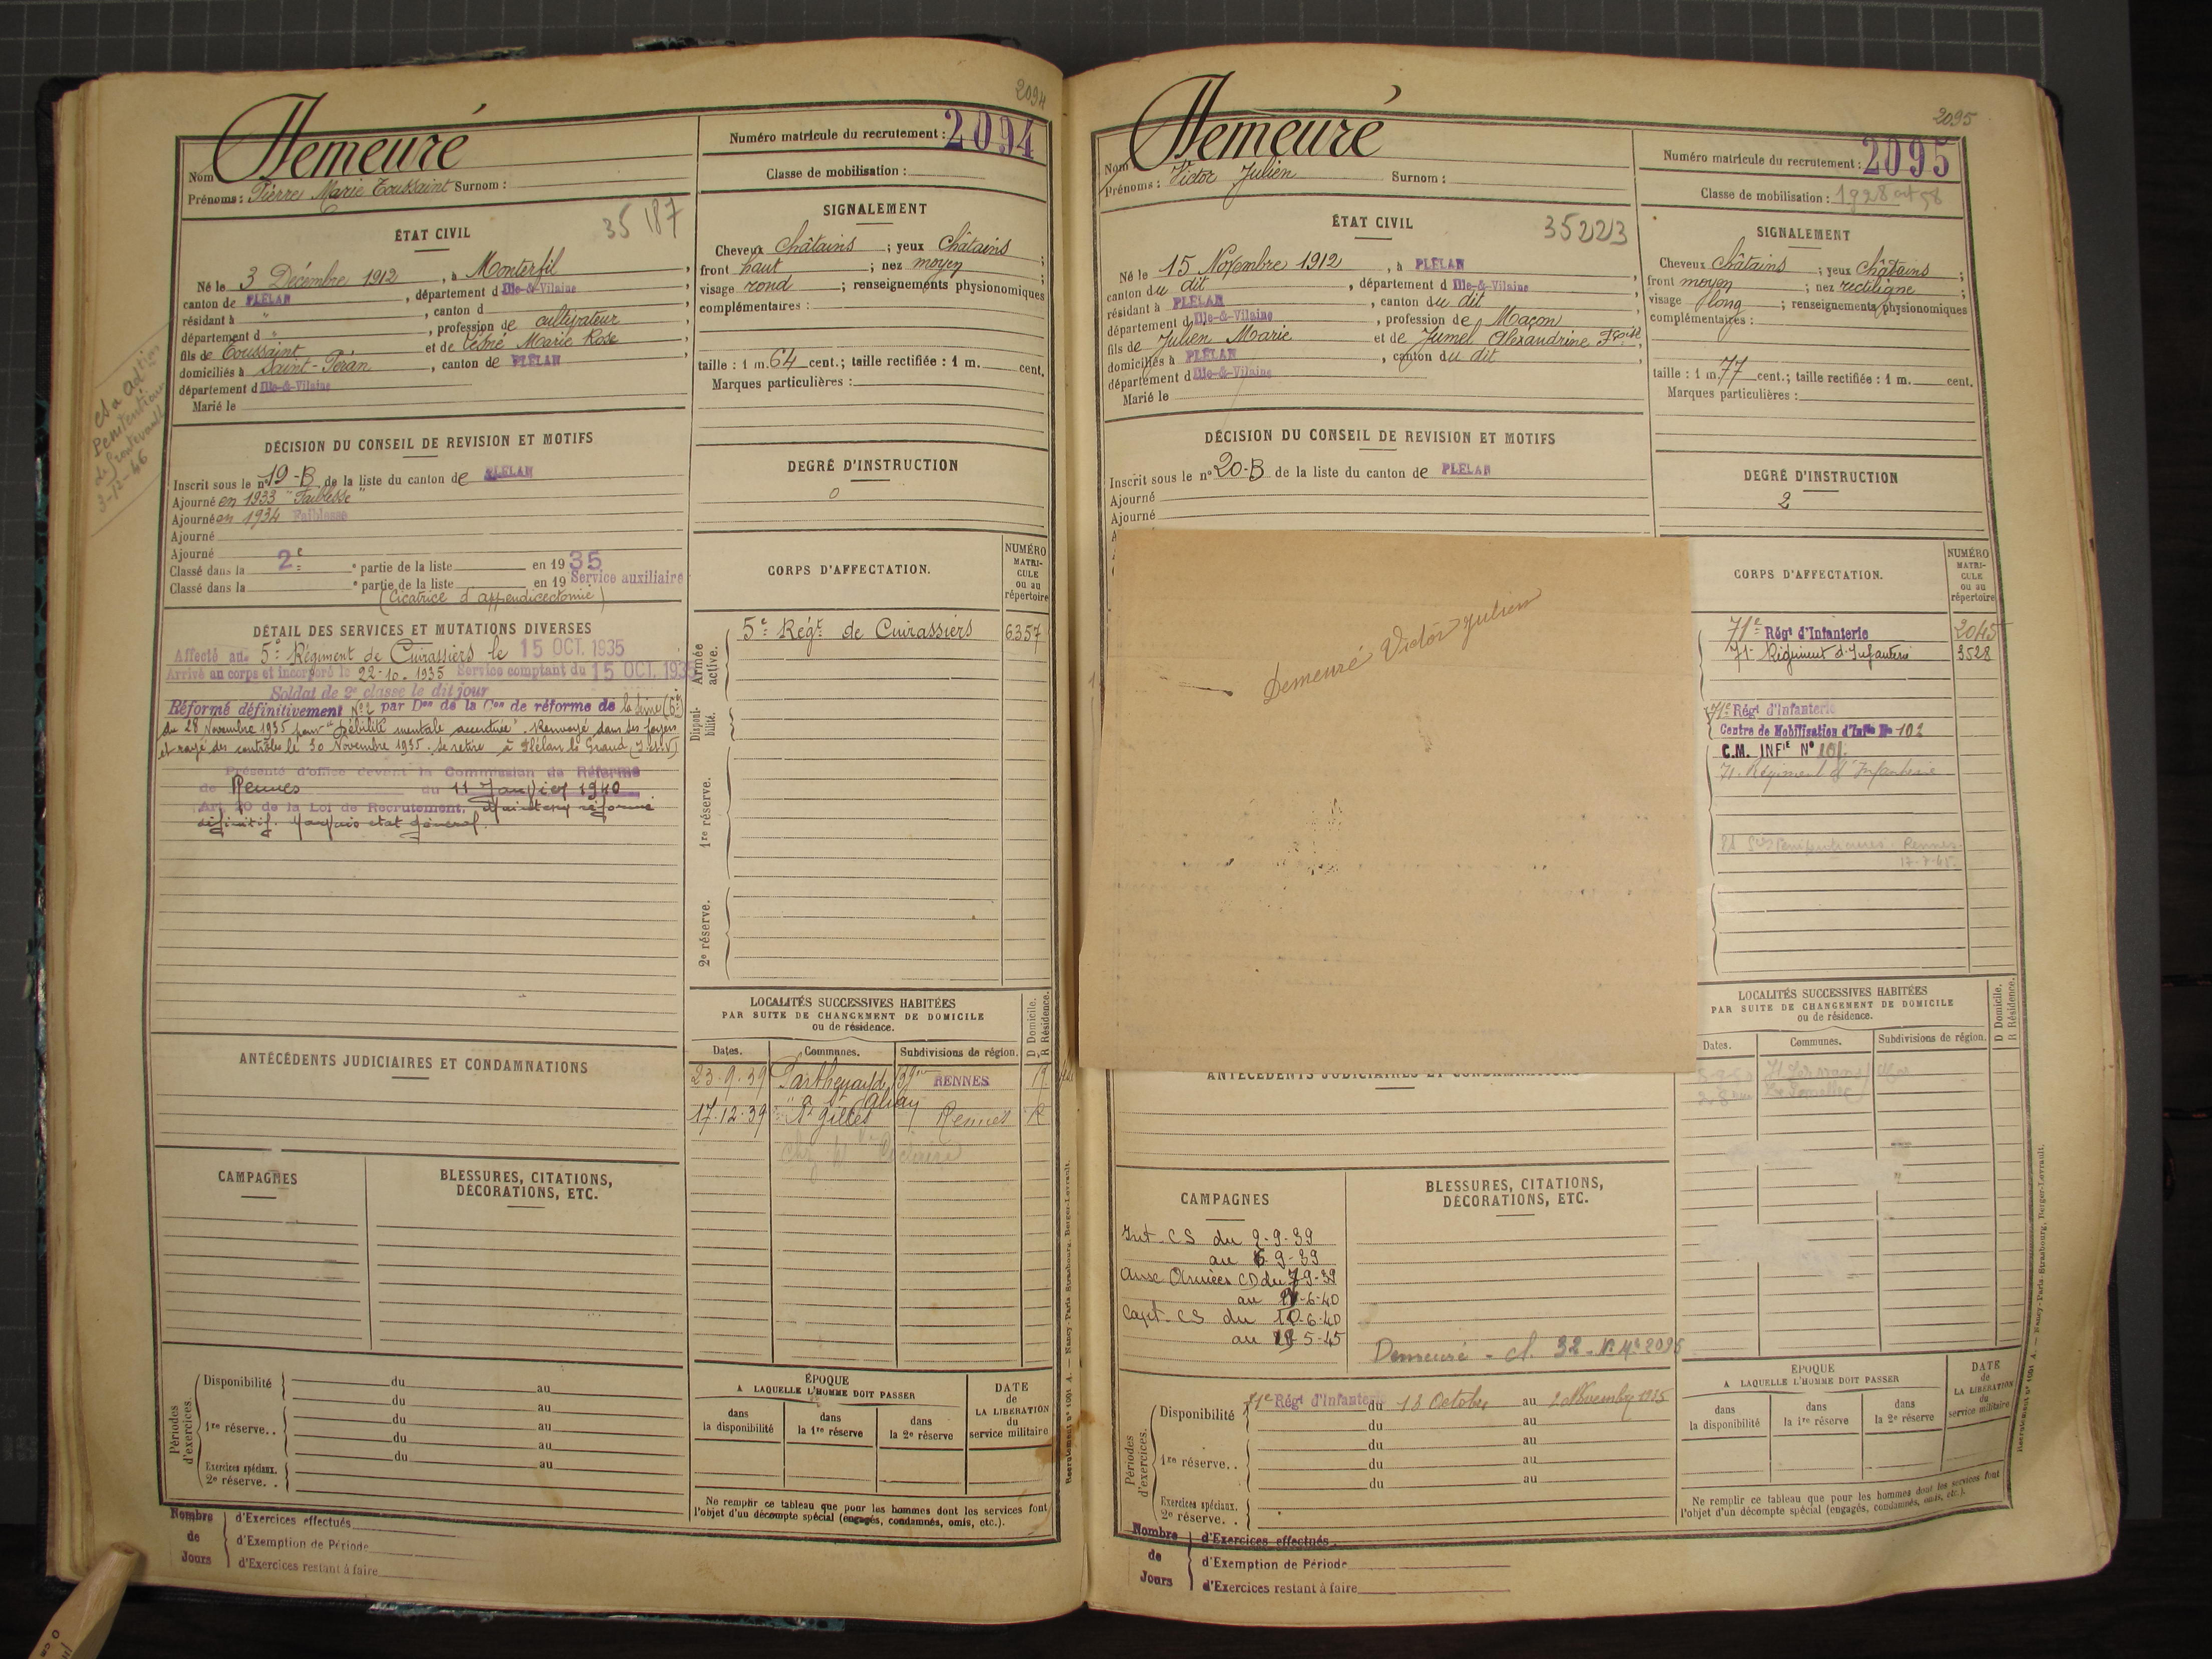 2094
Nom Demeuré
Prénoms : Pierre Marie Toussaint Surnom :
Numéro matricule du recrutement : 2094
Classe de mobilisation :
ÉTAT CIVIL
35187
Né le 3 Décembre 1912, à Monterfil,
canton de PLÉLAN, département d Ille-&-Vilaine,
résidant à ", canton d
département d ", profession de cultivateur,
fils de Toussaint et de Lesné Marie Rose
domiciliés à Saint-Péran, canton de PLÉLAN,
département d Ille-&-Vilaine
Marié le
SIGNALEMENT
Cheveux Châtains ; yeux Châtains ;
front haut ; nez moyen ;
visage rond ; renseignements physionomiques
complémentaires :
taille : 1 m. 64 cent.; taille rectifiée : 1 m. cent.
Marques particulières :
3-12-46
DÉCISION DU CONSEIL DE REVISION ET MOTIFS
Inscrit sous le n° 19-B de la liste du canton de PLÉLAN
Ajourné en 1933 "Faiblesse"
Ajourné en 1934 Faiblesse
Ajourné
Ajourné
Classé dans la 2e partie de la liste en 1935
Classé dans la e partie de la liste en 19 Service auxiliaire
(Cicatrice d'appendicectomie)
DEGRÉ D'INSTRUCTION
0
DÉTAIL DES SERVICES ET MUTATIONS DIVERSES
Affecté au 5e Régiment de Cuirassiers le 15 OCT. 1935
Arrivé au corps et incorporé le 22-10.1935 Service comptant du 15 OCT. 1935
Soldat de 2e classe le dit jour
Réformé définitivement N°2 par Don de la Con de réforme de la Seine (6e)
du 28 Novembre 1935 pour "débilité mentale accentuée". Renvoyé dans ses foyers
et rayé des contrôles le 30 Novembre 1935. Se retire à Plélan le Grand (I.et.V)
Présenté d'office devant la Commission de Réforme
de Rennes du 11 Janvier 1940
Art. 20 de la Loi de Recrutement. Maintenu réformé
définitif. Mauvais état général.
CORPS D'AFFECTATION.
NUMÉRO MATRICULE ou au répertoire
Armée active.
5e Régt de Cuirassiers 6357
Disponibilité.
1re réserve.
2e réserve.
LOCALITÉS SUCCESSIVES HABITÉES
PAR SUITE DE CHANGEMENT DE DOMICILE
ou de résidence.
D Domicile.
R Résidence.
Dates. Communes. Subdivisions de région.
23-9-39 RENNES
17-12-39 St Gilles Rennes R
ANTÉCÉDENTS JUDICIAIRES ET CONDAMNATIONS
CAMPAGNES
BLESSURES, CITATIONS,
DÉCORATIONS, ETC.
Périodes d'exercices.
Disponibilité du au
du au
1re réserve.. du au
du au
du au
Exercices spéciaux.
2e réserve. .
ÉPOQUE
A LAQUELLE L'HOMME DOIT PASSER
dans la disponibilité
dans la 1re réserve
dans la 2e réserve
DATE de LA LIBÉRATION du service militaire
Ne remplir ce tableau que pour les hommes dont les services font
l'objet d'un décompte spécial (engagés, condamnés, omis, etc.).
Nombre de Jours
d'Exercices effectués
d'Exemption de Période
d'Exercices restant à faire
Recrutement n° 1091 A. — Nancy-Paris-Strasbourg, Berger-Levrault.
2095
Nom Demeuré
Prénoms : Victor Julien Surnom :
Numéro matricule du recrutement : 2095
Classe de mobilisation : 1928 art 58
ÉTAT CIVIL
35223
Né le 15 Novembre 1912, à PLÉLAN,
canton du dit, département d Ille-&-Vilaine,
résidant à PLÉLAN, canton du dit,
département d Ille-&-Vilaine, profession de Maçon,
fils de Julien Marie et de Jumel Alexandrine Fçoise,
domiciliés à PLÉLAN, canton du dit,
département d Ille-&-Vilaine
Marié le
SIGNALEMENT
Cheveux Châtains ; yeux Châtains ;
front moyen ; nez rectiligne ;
visage long ; renseignements physionomiques
complémentaires :
taille : 1 m. 77 cent.; taille rectifiée : 1 m. cent.
Marques particulières :
DÉCISION DU CONSEIL DE REVISION ET MOTIFS
Inscrit sous le n° 20-B de la liste du canton de PLÉLAN
Ajourné
Ajourné
DEGRÉ D'INSTRUCTION
2
Demeuré Victor Julien
CORPS D'AFFECTATION.
NUMÉRO MATRICULE ou au répertoire
71e Régt d'Infanterie 2045
71e Régiment d'Infanterie 3528
71e Régt d'Infanterie
Centre de Mobilisation d'Infie N° 102
C.M. INFIE N° 101
71e Régiment d'Infanterie
Rennes
17-7-45.
LOCALITÉS SUCCESSIVES HABITÉES
PAR SUITE DE CHANGEMENT DE DOMICILE
ou de résidence.
D Domicile.
R Résidence.
Dates. Communes. Subdivisions de région.
ANTÉCÉDENTS JUDICIAIRES ET CONDAMNATIONS
CAMPAGNES
Int. CS du 2-9-39
au 6-9-39
Armées CD du 7-9-39
au -6-40
Capt. CS du 10-6-40
au 5-45
BLESSURES, CITATIONS,
DÉCORATIONS, ETC.
Demeuré - cl. 32 - N° Mle 2095
Périodes d'exercices.
Disponibilité 71e Régt d'Infanterie du 18 Octobre au Novembre 1935
du au
1re réserve.. du au
du au
du au
Exercices spéciaux.
2e réserve. .
ÉPOQUE
A LAQUELLE L'HOMME DOIT PASSER
dans la disponibilité
dans la 1re réserve
dans la 2e réserve
DATE de LA LIBÉRATION du service militaire
Ne remplir ce tableau que pour les hommes dont les services font
l'objet d'un décompte spécial (engagés, condamnés, omis, etc.).
Nombre de Jours
d'Exercices effectués
d'Exemption de Période
d'Exercices restant à faire
Recrutement n° 1091 A. — Nancy-Paris-Strasbourg, Berger-Levrault.